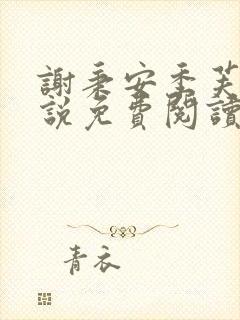 謝秉安季芙
說免費閱讀
青衣